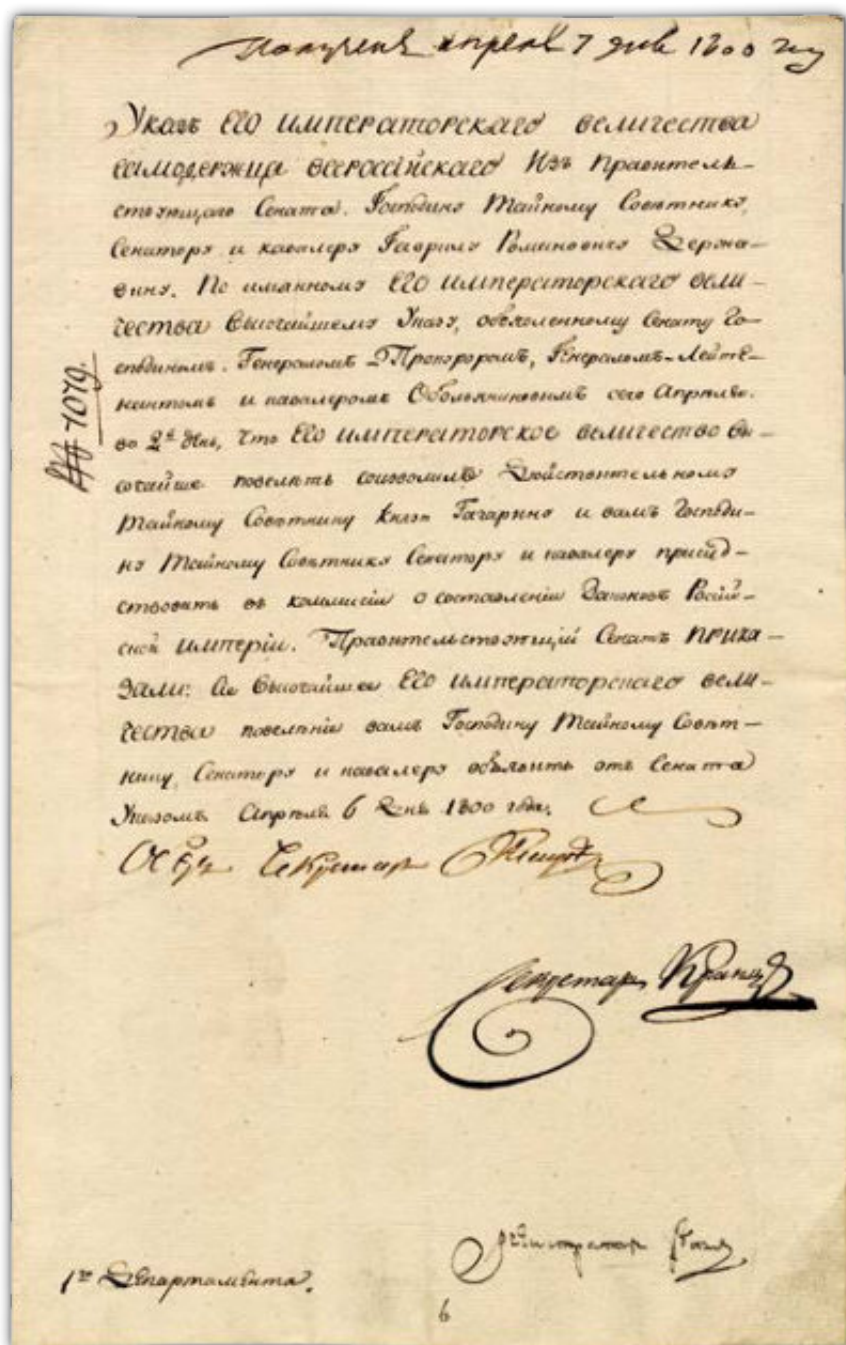 Полученъ апреля 7 дня 1800 году
Указъ ЕГО ИМПЕРАТОРСКАГО ВЕЛИЧЕСТВА
САМОДЕРЖЦА ВСЕРОССІЙСКАГО Изъ Правитель-
ствующаго Сената. Господину Тайному Совѣтнику,
Сенатору и кавалеру Гавриилу Романовичу Держа-
вину. По имянному ЕГО ИМПЕРАТОРСКАГО ВЕЛИ-
ЧЕСТВА Высочайшему Указу, объявленному Сенату Го-
сподиномъ Генераломъ Прокуроромъ, Генераломъ-Лейте-
нантомъ и кавалеромъ Обольяниновымъ сего Апрѣля
во 2й день, что ЕГО ИМПЕРАТОРСКОЕ ВЕЛИЧЕСТВО Вы-
сочайше повелѣть соизволилъ Дѣйствительному
Тайному Совѣтнику Князю Гагарину и вамъ Господи-
ну Тайному Совѣтнику Сенатору и кавалеру присуд-
ствовать въ коммисіи о составленіи Законовъ Россій-
ской ИМПЕРІИ. Правительствующій Сенатъ ПРИКА-
ЗАЛИ: О Высочайшемъ ЕГО ИМПЕРАТОРСКАГО ВЕЛИ-
ЧЕСТВА повелѣніи вамъ Господину Тайному Совѣт-
нику, Сенатору и кавалеру объявить отъ Сената
Указомъ Апрѣля 6 дня 1800 года.
№ 1079.
Секретарь
Секретарь
Регистраторъ
1го Департамента.
6